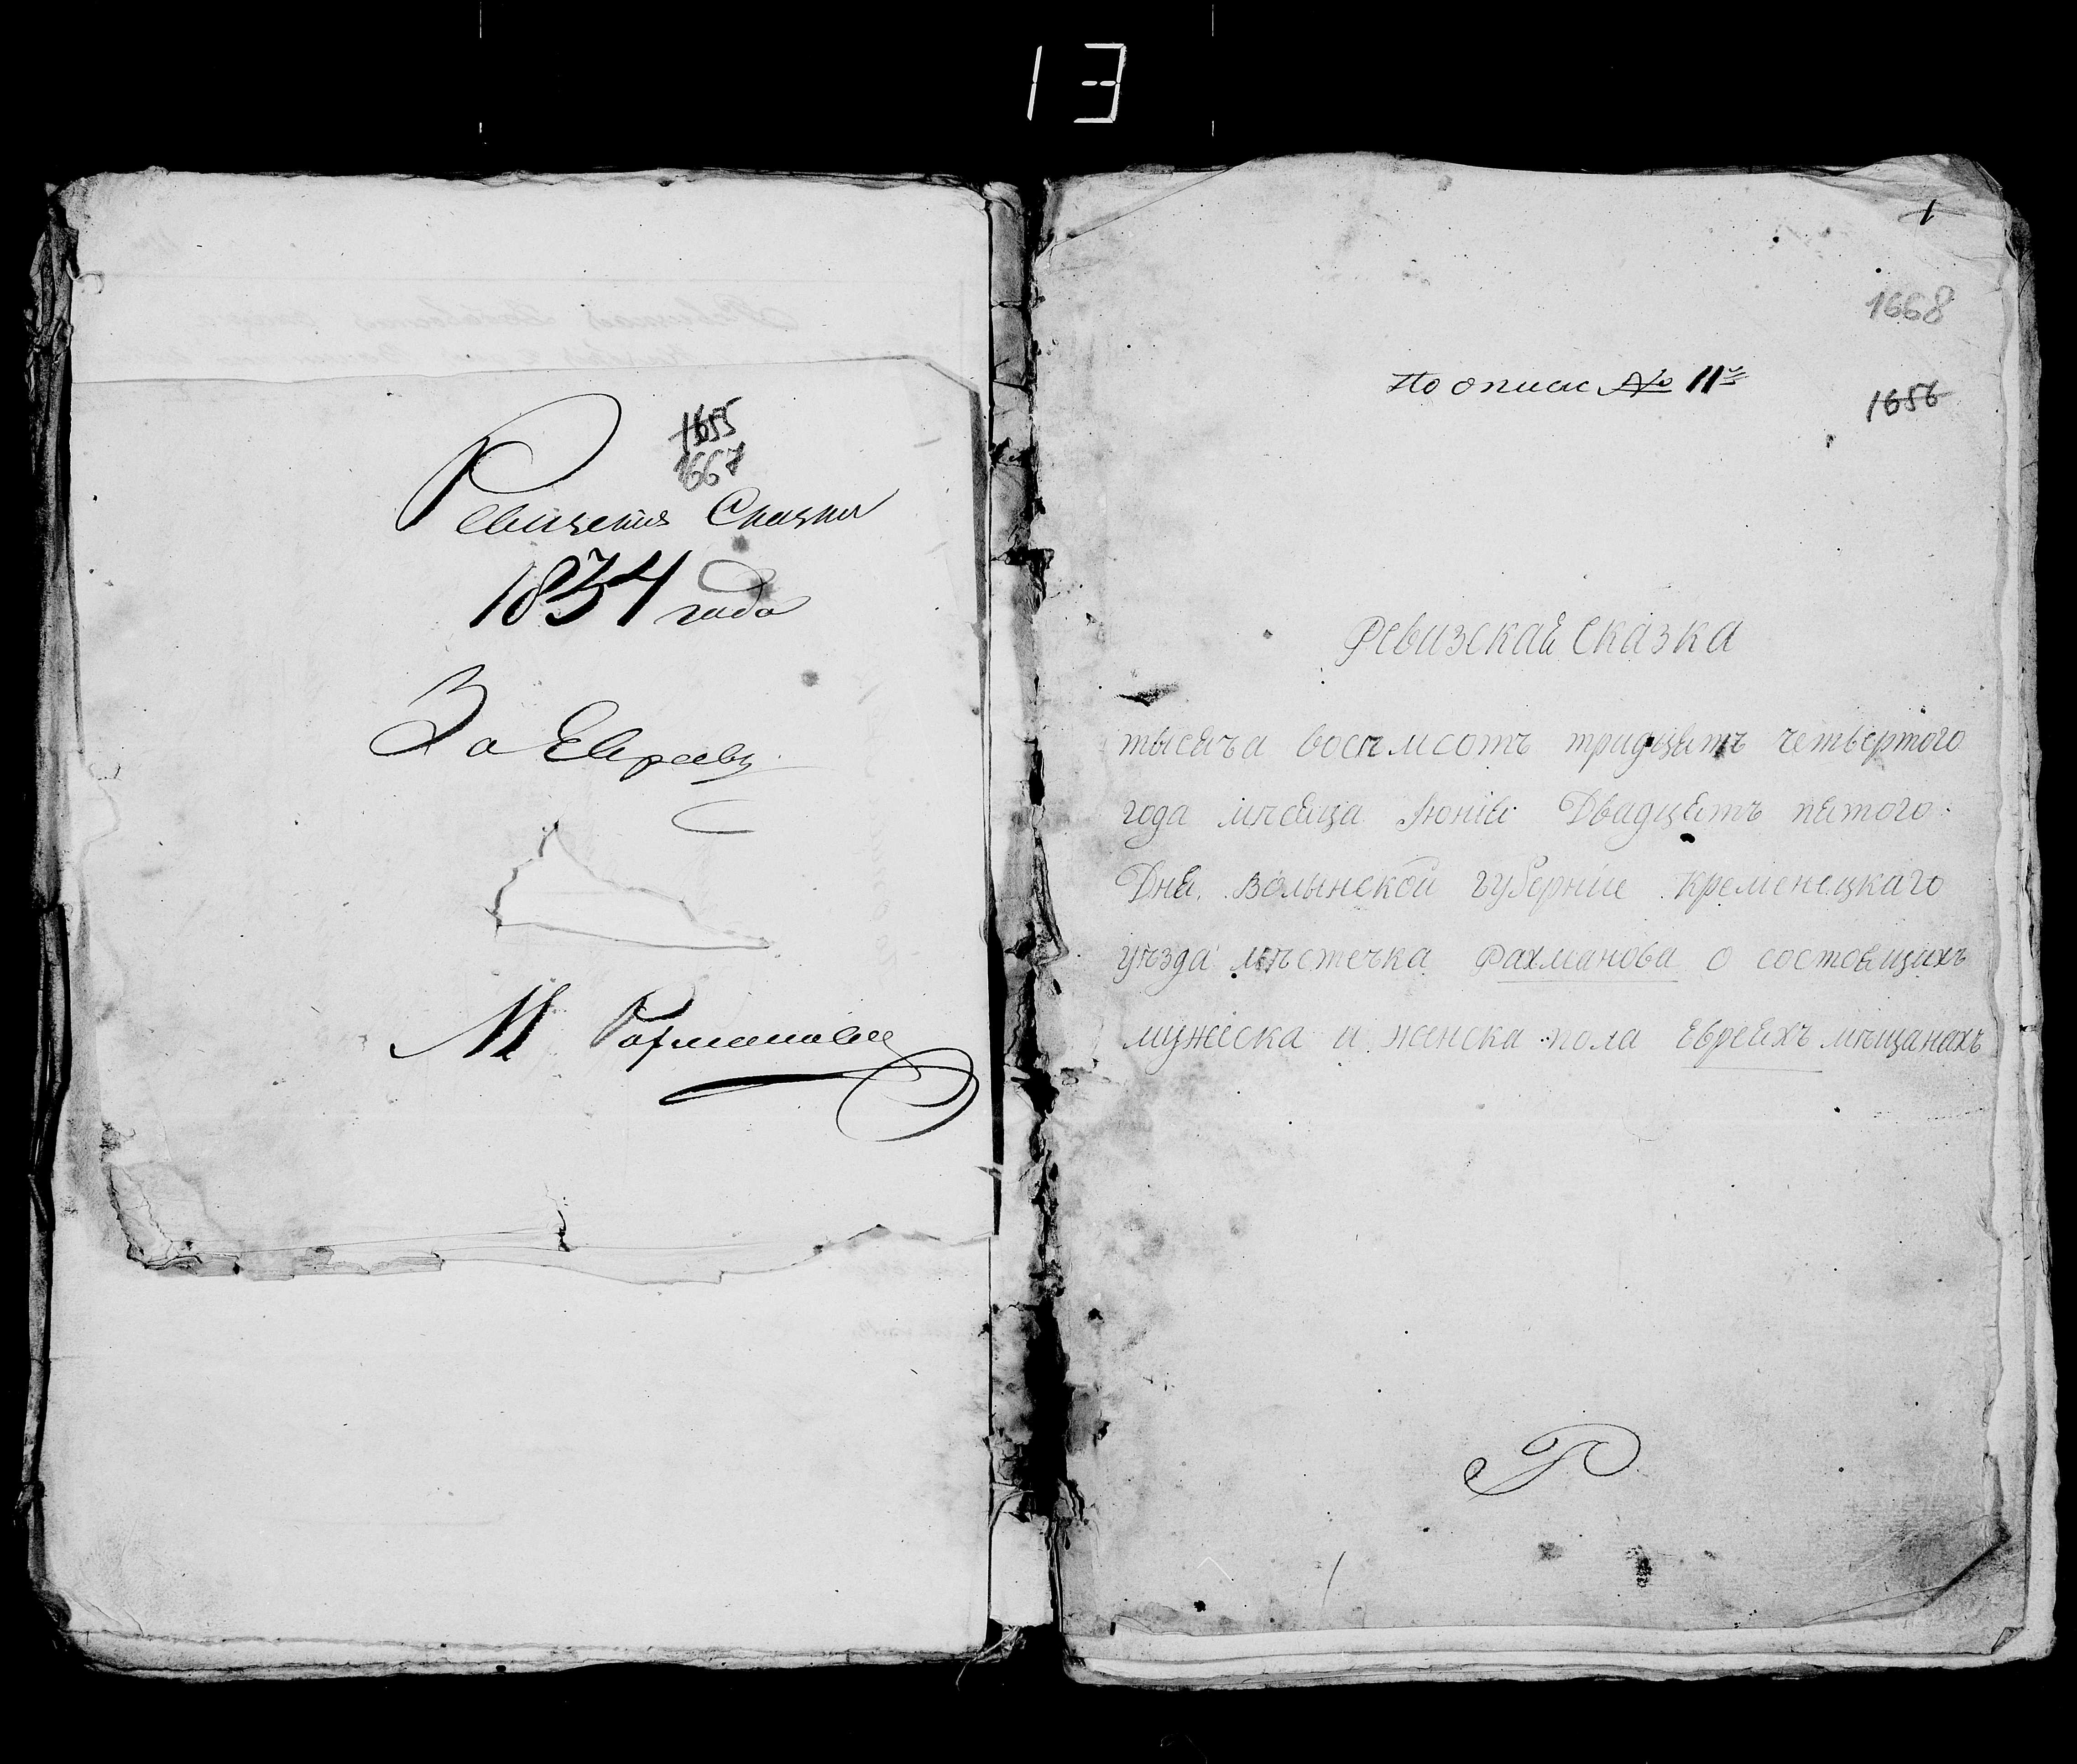 13
1655
1667
Ревизския Сказки
1834 года
За Евреевъ
М Рахманова
1
1668
По описи № 11й
1656
Ревизская Сказка
тысяча восѣмсотъ тридцять четвертого
года мѣсяца Іюнія Двадцять пятого
Дня. Волынской губерніи Кременецкаго
уѣзда мѣстечка Рахманова о состоящихъ
мужеска и женска пола Евреяхъ мѣщанахъ